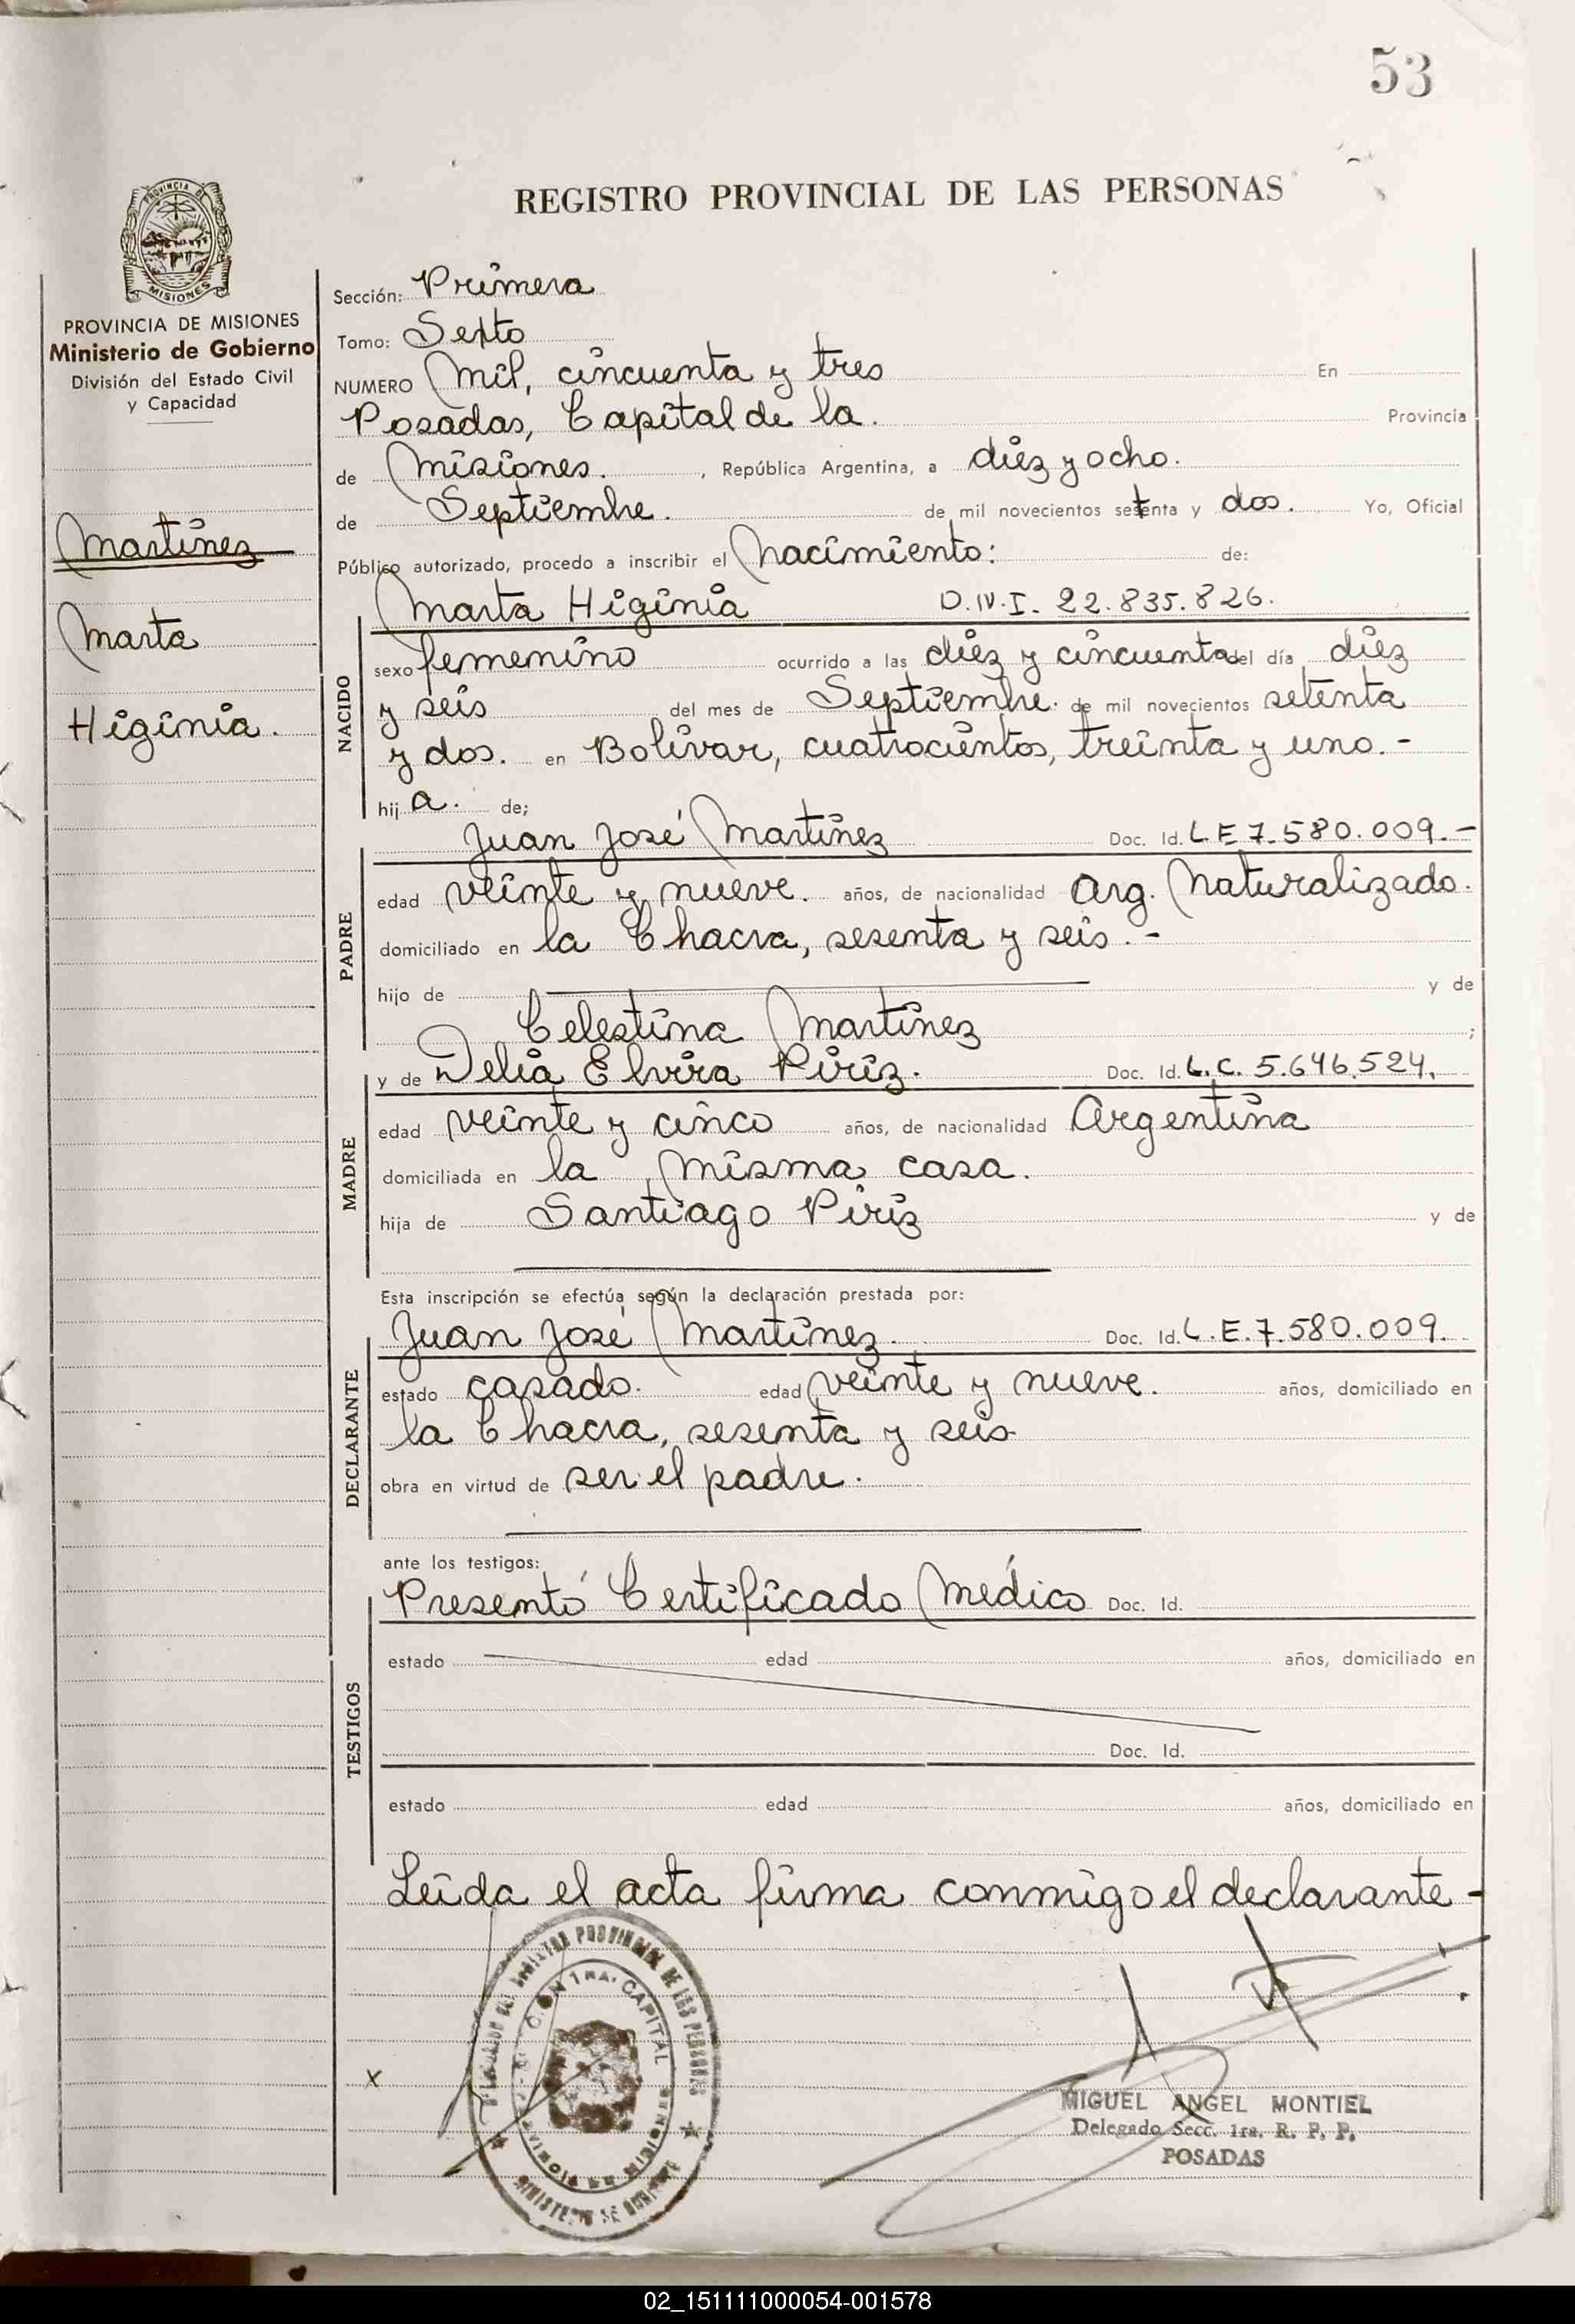 53
REGISTRO PROVINCIAL DE LAS PERSONAS
PROVINCIA DE
MISIONES
PROVINCIA DE MISIONES
Ministerio de Gobierno
División del Estado Civil
y Capacidad
Martínez
Marta
Higinia.
Sección: Primera
Tomo: Sexto
NUMERO Mil, cincuenta y tres En
Posadas, Capital de la. Provincia
de Misiones. , República Argentina, a diez y ocho.
de Septiembre. de mil novecientos setenta y dos. Yo, Oficial
Público autorizado, procedo a inscribir el Nacimiento: de:
Marta Higinia D.N.I. 22.835.826.
NACIDO
sexo femenino ocurrido a las diez y cincuenta del día diez
y seis del mes de Septiembre. de mil novecientos setenta
y dos. en Bolívar, cuatrocientos, treinta y uno.-
hij a. de;
Juan José Martínez Doc. Id. L E 7.580.009.-
PADRE
edad veinte y nueve. años, de nacionalidad Arg. Naturalizado.
domiciliado en la Chacra, sesenta y seis.-
hijo de y de
Celestina Martínez ;
y de Delia Elvira Piriz. Doc. Id. L.C. 5.646.524.
MADRE
edad veinte y cinco años, de nacionalidad Argentina
domiciliada en la misma casa.
hija de Santiago Piriz y de
Esta inscripción se efectúa según la declaración prestada por:
Juan José Martínez. Doc. Id. L.E.7.580.009.
DECLARANTE
estado casado. edad veinte y nueve. años, domiciliado en
la Chacra, sesenta y seis
obra en virtud de ser el padre.
ante los testigos:
Presentó Certificado Médico Doc. Id.
TESTIGOS
estado edad años, domiciliado en
Doc. Id.
estado edad años, domiciliado en
Leída el acta firma conmigo el declarante-
PROVINCIAL DE LAS PERSONAS
1RA. CAPITAL
x
MIGUEL ANGEL MONTIEL
Delegado Secc. 1ra. R. P. P.
POSADAS
02_151111000054-001578